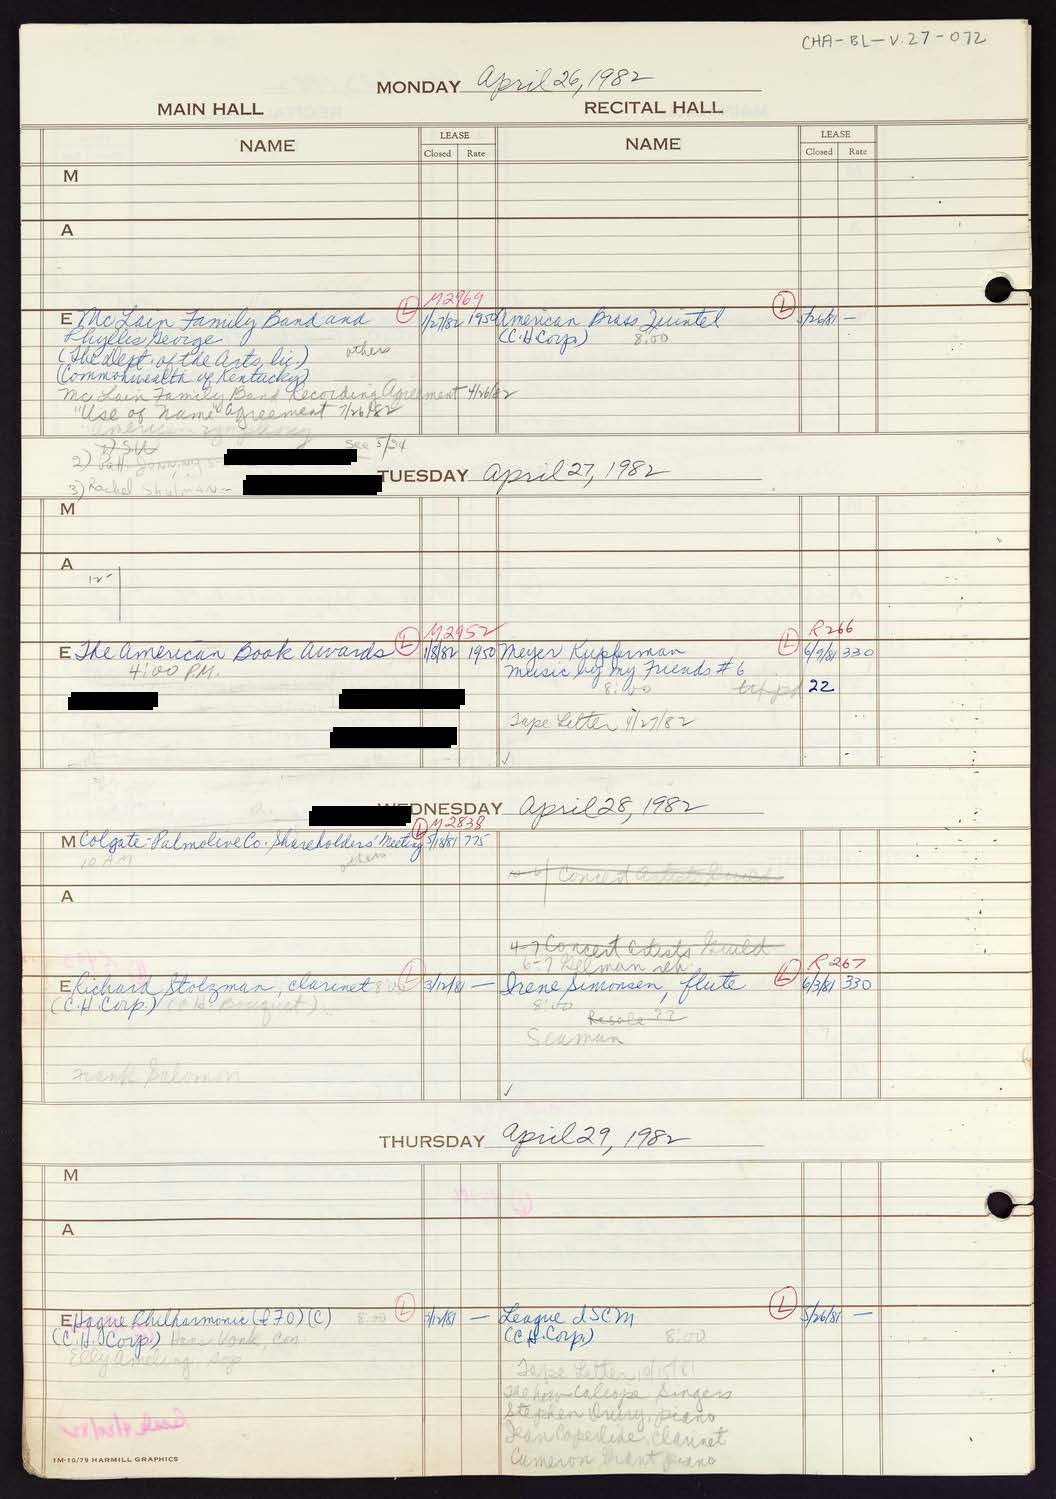 CHA-BL-V.27-072
MONDAY April 26, 1982
MAIN HALL RECITAL HALL
NAME LEASE NAME LEASE
Closed Rate Closed Rate
M
A
M2969
E Mc Lain Family Band and L 1/27/82 1950 American Brass Quintet L 5/26/81 —
Phyllis George (C.H Corp) 8:00
(The Dept. of the Arts, Inc.) others
(Commonwealth of Kentucky)
Mc Lain Family Band Recording Agreement 4/26/82
"Use of Name" Agreement 7/26/82
American Symphony
1) SU see 5/24
2) Patt Jennings -
3) Rachel Shulman -
TUESDAY April 27, 1982
M
A
12-
M2952 R266
E The American Book Awards L 1/8/82 1950 Meyer Kupferman L 6/9/81 330
4:00 P.M. Music by my Friends #6
8:00 22
Tape Letter 4/27/82
✓
WEDNESDAY April 28, 1982
M2838
M Colgate-Palmolive Co. Shareholders' Meeting L 5/18/81 775
10 AM others
Concert Artists Guild
A
4-7 Concert Artists Guild
6-7 Gelman reh
R267
E Richard Stolzman, clarinet 8:00 L 3/12/81 — Irene Simonsen, flute L 6/3/81 330
(C.H. Corp.) (C.H. Bouquet) 8:00
Resale 22
Seaman
Frank Salomon
✓
THURSDAY April 29, 1982
M
A
E Hague Philharmonic (£70) (C) 8:00 L 3/12/81 — League ISCM L 5/26/81 —
(C.H. Corp.) Hans Vonk, con. (C.H. Corp.) 8:00
Elly Ameling, sop
Tape Letter 10/15/81
The New Caliope Singers
Stephen Drury, piano
Jean Koperlike, clarinet
Cameron Grant piano
1M-10/79 HARMILL GRAPHICS